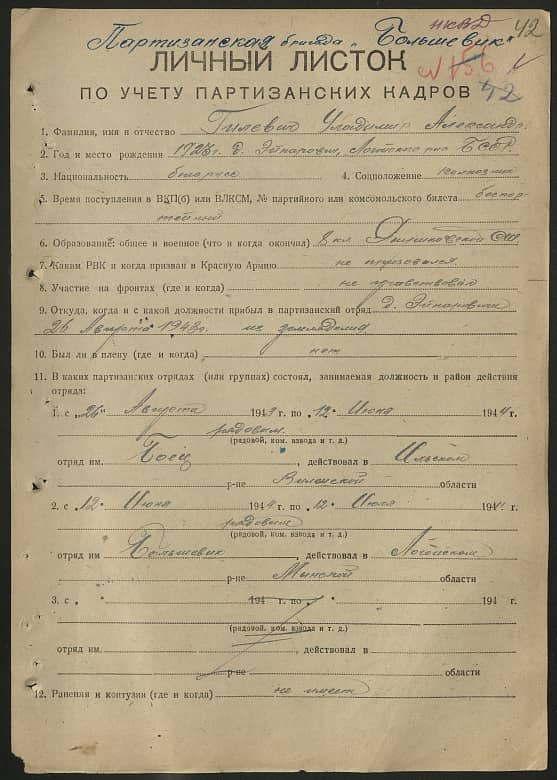 НКВД 42
Партизанская бригада „Большевик“
ЛИЧНЫЙ ЛИСТОК
№ 156
ПО УЧЕТУ ПАРТИЗАНСКИХ КАДРОВ 42
1. Фамилия, имя и отчество Гилевич Владимир Александр.
2. Год и место рождения д. Эйнаровичи, Логойского р-на БССР.
3. Национальность беларусс 4. Соцположение колхозник
5. Время поступления в ВКП(б) или ВЛКСМ, № партийного или комсомольского билета беспар-
тейный
6. Образование: общее и военное (что и когда окончил) 8 кл СШ
7. Каким РВК и когда призван в Красную Армию не призывался
8. Участие на фронтах (где и когда) не участвовал
9. Откуда, когда и с какой должности прибыл в партизанский отряд д. Эйнаровичи
26 Августа 1943г. из земледелия
10. Был ли в плену (где и когда) нет
11. В каких партизанских отрядах (или группах) состоял, занимаемая должность и район действия
отряда:
1. с „26“ Августа 1943 г. по „12“ Июня 1944 г.
рядовым.
(рядовой, ком. взвода и т. д.)
отряд им. Боец, действовал в Ильском
р-не Вилейской области
2. с „12“ Июня 1944 г. по „12“ Июля 1944 г.
рядовым
(рядовой, ком. взвода и т. д.)
отряд им Большевик, действовал в Логойском
р-не Минской области
3. с „ 194 г. по „ 194 г.
(рядовой, ком. взвода и т. д.)
отряд им. , действовал в
р-не области
12. Ранения и контузии (где и когда) не имеет